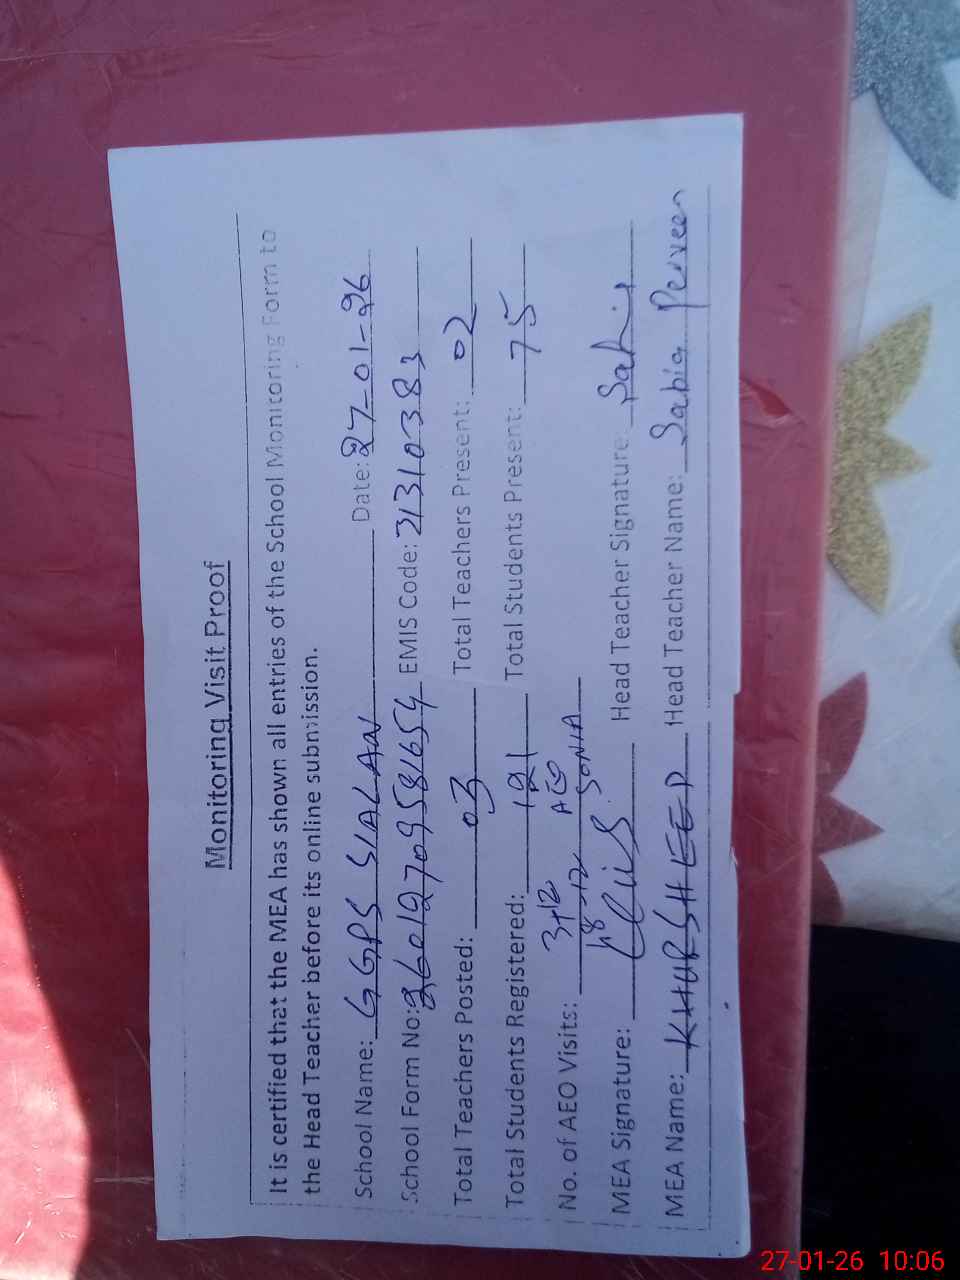 Monitoring Visit Proof
It is certified that the MEA has shown all entries of the School Monitoring Form to
the Head Teacher before its online submission.
School Name: GGPS SIALAN Date: 27-01-26
School Form No: 26012709581654 EMIS Code: 31310383
Total Teachers Posted: 03 Total Teachers Present: 02
Total Students Registered: 191 Total Students Present: 75
No. of AEO Visits: 3+12 AEO
18-12 SONIA
MEA Signature: Head Teacher Signature: Sabi
MEA Name: KHURSHEED Head Teacher Name: Sabia Perveen
27-01-26 10:06